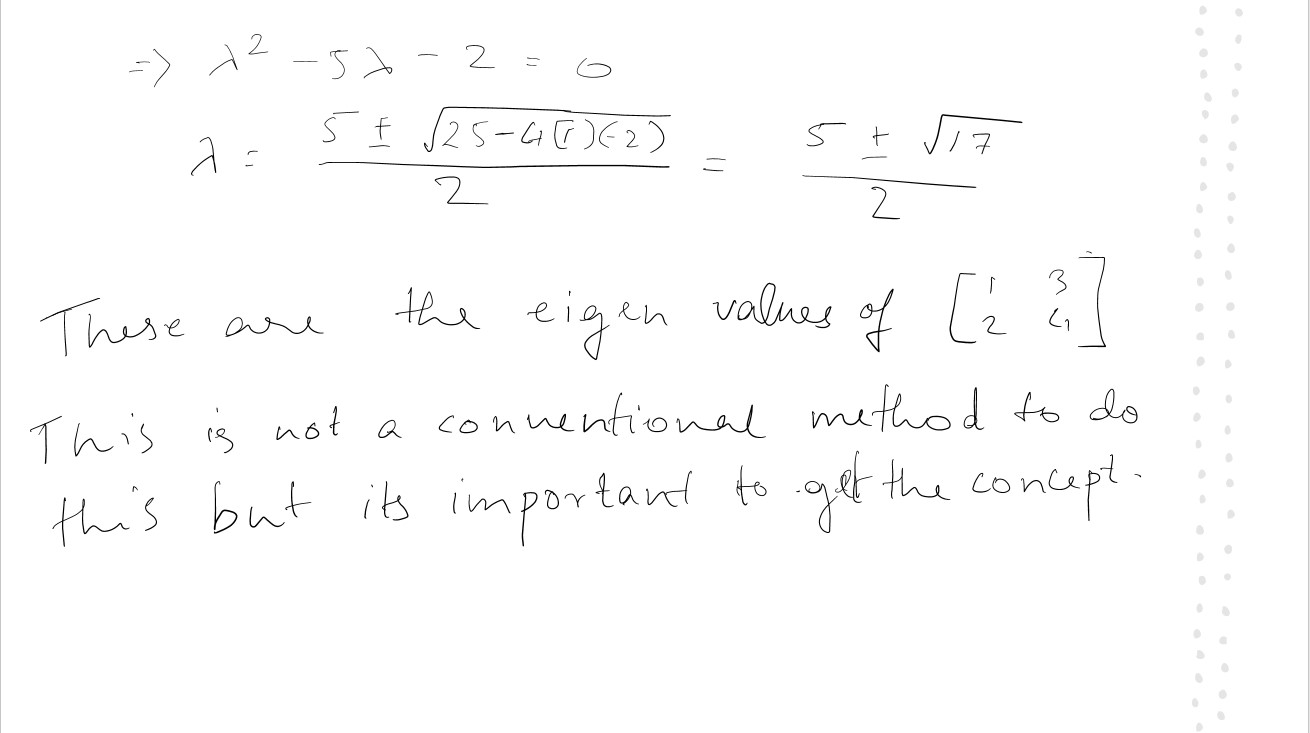 => λ² - 5λ - 2 = 0
λ = (5 ± √(25-4(1)(-2)))/2 = (5 ± √17)/2
These are the eigen values of [1 3; 2 4]
This is not a conventional method to do
this but its important to get the concept.